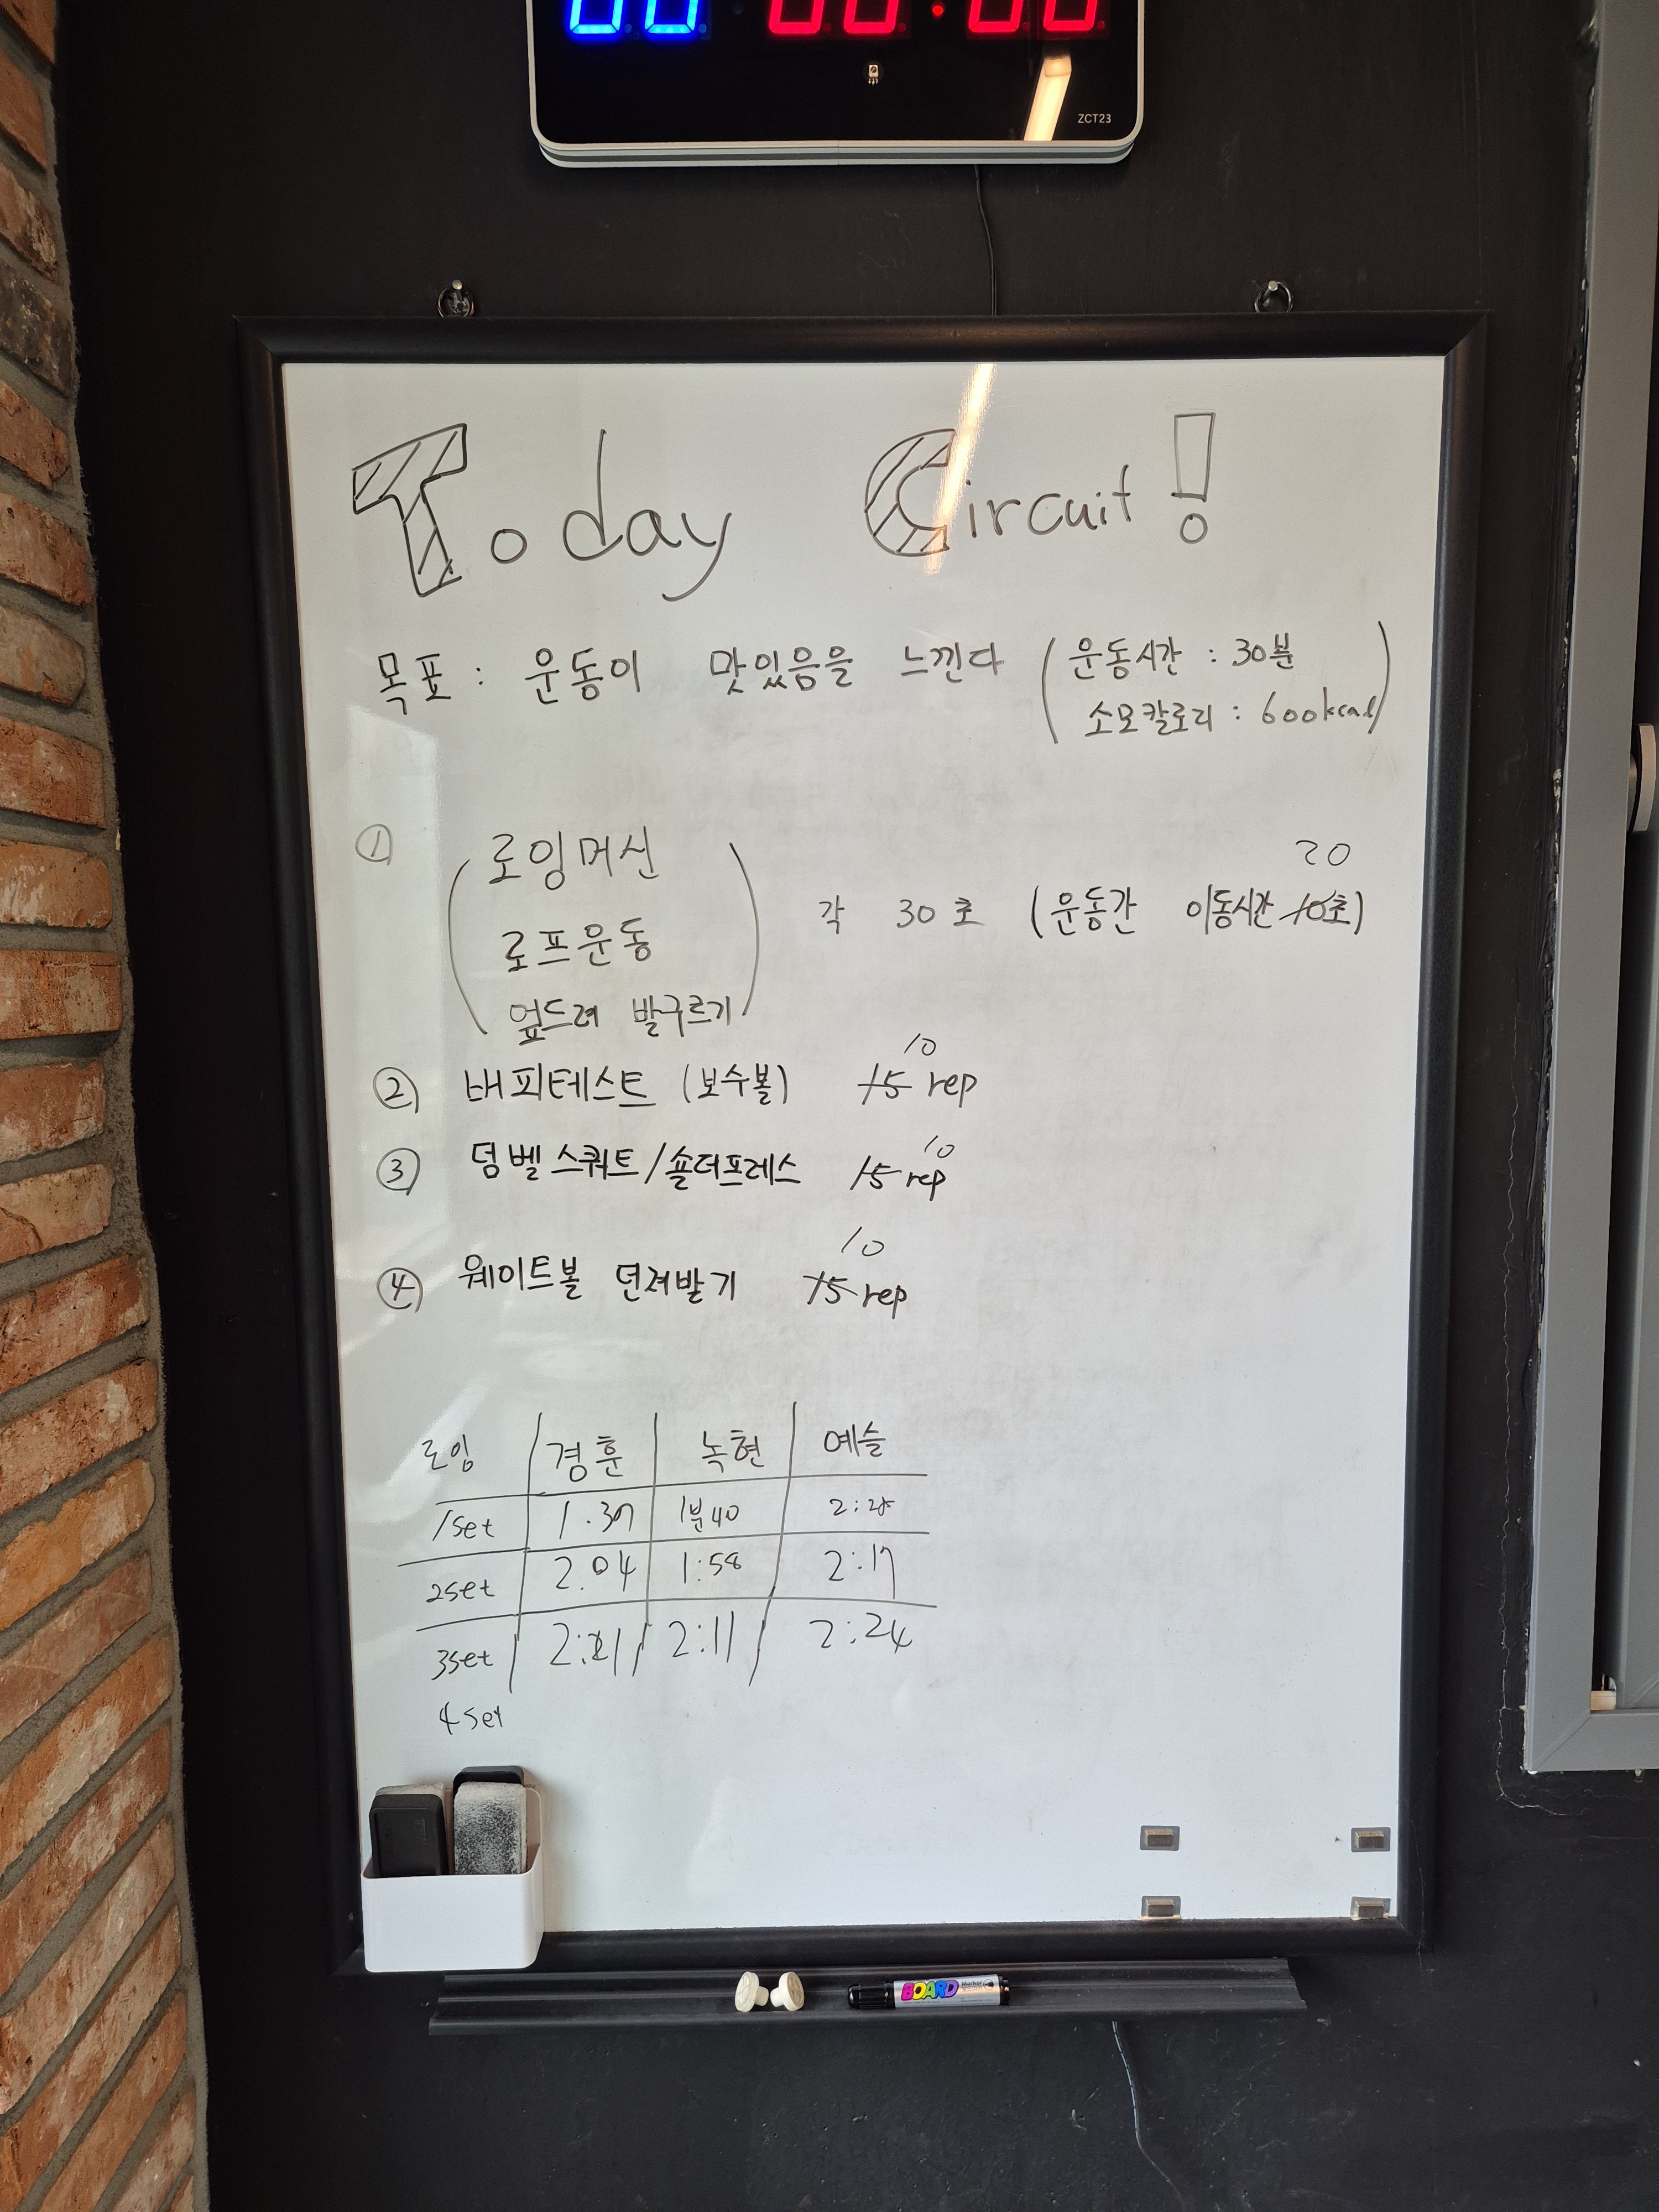 00 00:00
ZCT23
Today Circuit!
목표 : 운동이 맛있음을 느낀다 (운동시간 : 30분
소모칼로리 : 600kcal)
① (로잉머신
로프운동
엎드려 발구르기)
20
각 30초 (운동간 이동시간 10초)
10
② 배피테스트 (보수볼) 15 rep
10
③ 덤벨스쿼트/숄더프레스 15 rep
10
④ 웨이트볼 던져받기 15 rep
로잉 경훈 녹현 예슬
1set 1분40
2set 2.04 1:58 2:17
3set 2:21 2:11 2:24
4set
BOARD Marker